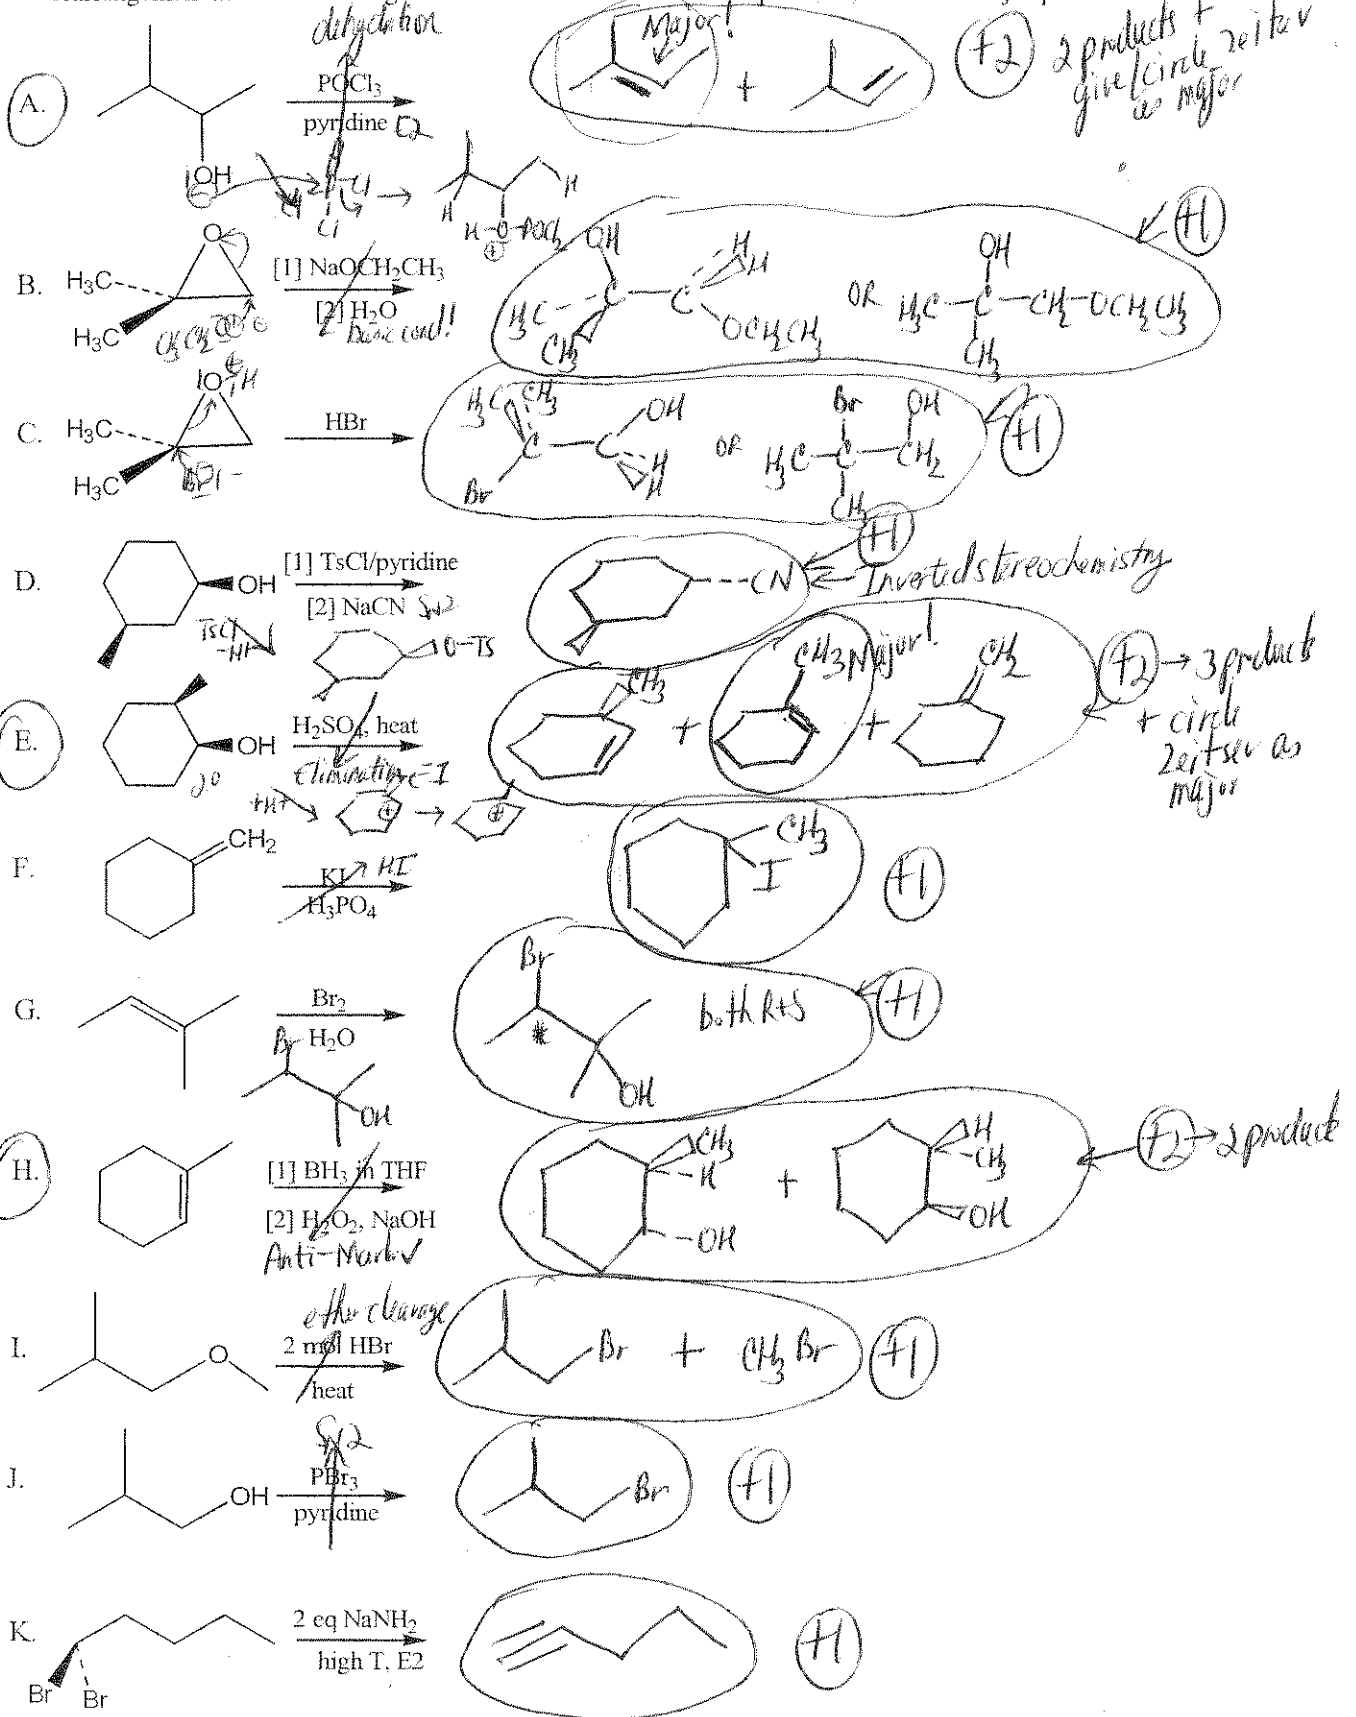 dehydration
Major!
+2
2 products +
give/circle Zeitsev
as major
A.
POCl3
pyridine E2
+
OH
Cl
Cl
H
H
H-O-POCl2
B.
H3C
H3C
O
[1] NaOCH2CH3
[2] H2O
Basic cond!
CH3CH2O
OH
H
H
H3C
C
C
CH3
OCH2CH3
OR
OH
H3C-C-CH2-OCH2CH3
CH3
+1
C.
H3C
H3C
O
H
HBr
H3C
CH3
OH
C
C
Br
H
H
OR
Br
OH
H3C-C-CH2
CH3
+1
D.
OH
[1] TsCl/pyridine
[2] NaCN SN2
TsCl
-H+
O-Ts
CN
+1
Inverted stereochemistry
E.
OH
2°
H2SO4, heat
Elimination E-I
+H+
CH3
+
CH3
Major!
+
CH2
+2
3 products
+ circle
Zeitsev as
major
F.
CH2
KI
HI
H3PO4
CH3
I
+1
G.
Br2
H2O
Br
OH
Br
*
OH
both R+S
+1
H.
[1] BH3 in THF
[2] H2O2, NaOH
Anti-Markov
CH3
H
OH
+
H
CH3
OH
+2
2 products
I.
O
ether cleavage
2 mol HBr
heat
Br + CH3Br
+1
J.
OH
SN2
PBr3
pyridine
Br
+1
K.
Br
Br
2 eq NaNH2
high T, E2
+1